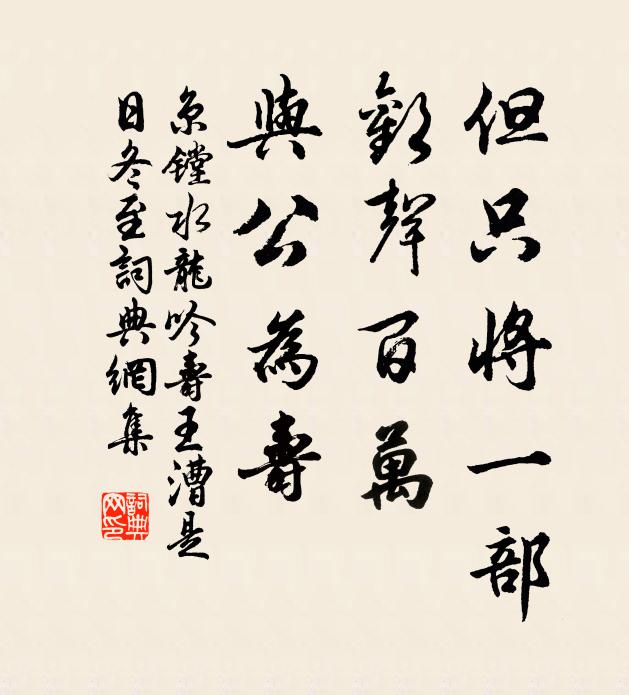 但只將一部
歡聲百萬
與公為壽
京鏜水龍吟壽王漕是
日冬至詞典網集
詞典
网印